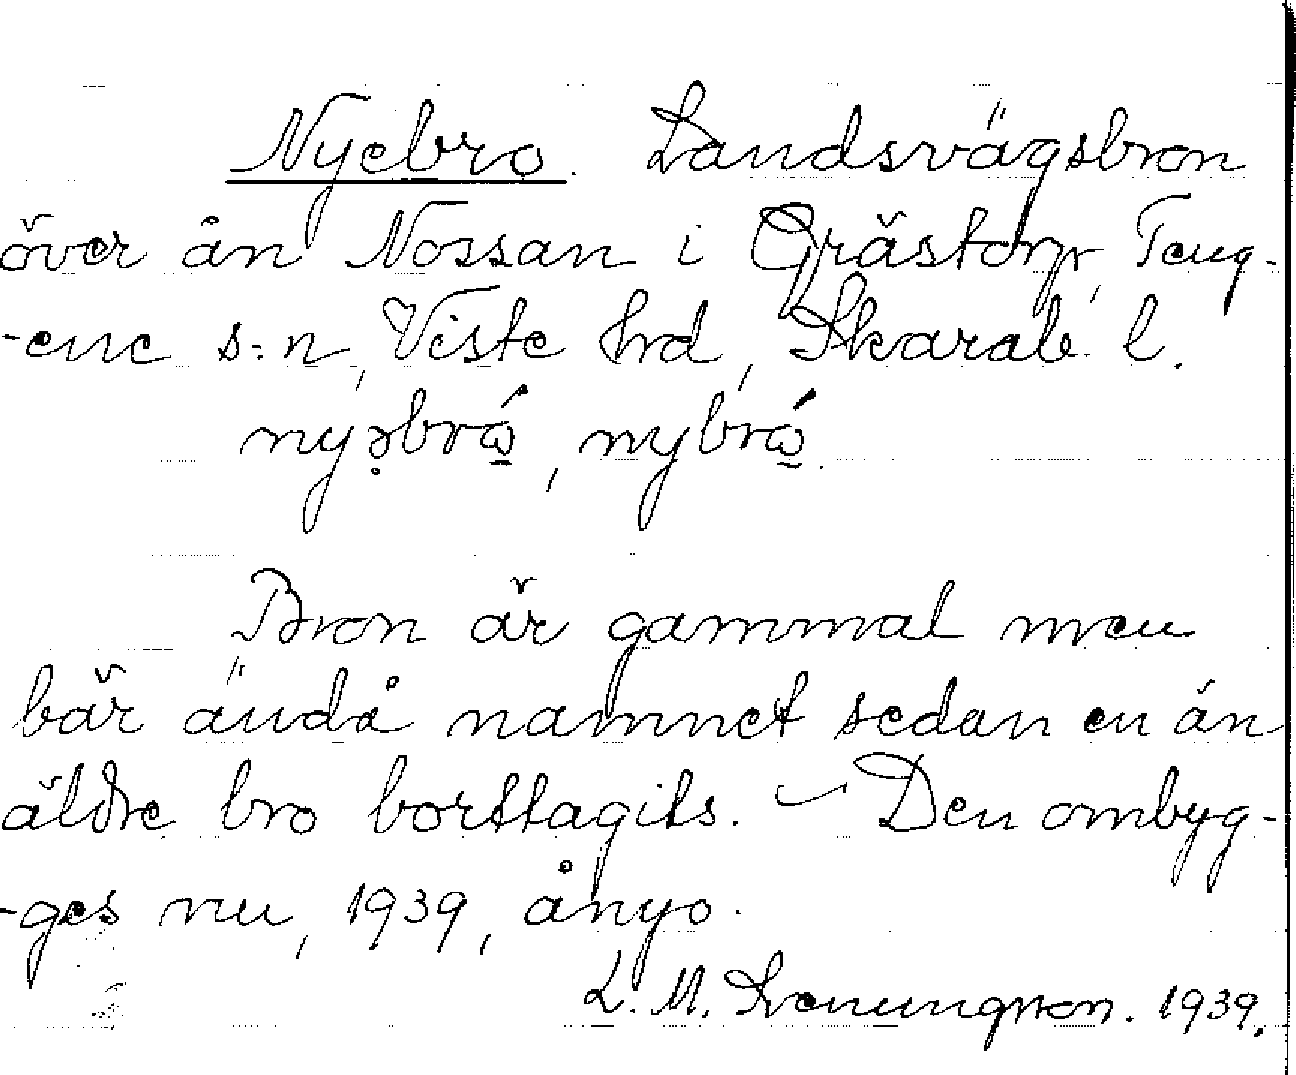 Nyebro. Landsvägsbron
över ån Nossan i Grästorp, Teng-
-ene s:n, Viste hrd, Skarab. l.
nyə̣brώ̲, nybrώ̲.
Bron är gammal men
bär ändå namnet sedan en än
äldre bro borttagits. — Den ombyg-
-ges nu, 1939, ånyo.
L. M. 1939.